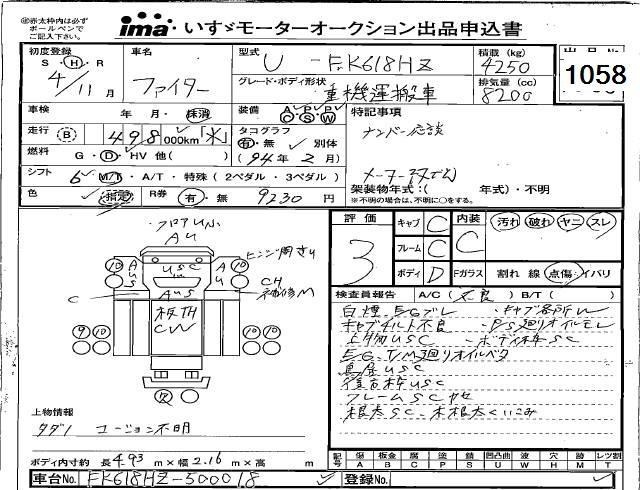 ※赤太枠内は必ずボールペンでご記入下さい。
ima いすゞモーターオークション出品申込書
初度登録 S・H・R 4/11月
車名 ファイター
型式 U-FK618HZ
積載 (kg) 4250
グレード・ボディ形状 重機運搬車
排気量 (cc) 8200
1058
車検 年・月・抹消
装備 A P P C S W
特記事項
走行 B 498,000km「 」
タコグラフ 有・無 別体
(94年2月)
ナンバー応談
燃料 G・D・HV 他( )
シフト 6 M/T・A/T・特殊(2ペダル・3ペダル)
架装物年式:( 年式)・不明
※不明の場合は、不明に○をする。
色 指定 R券 有・無 9230円
評価 3
キャブ C
フレーム C
ボディ D
内装 C
汚れ 破れ ヤニ スレ
Fガラス 割れ 線 点傷 イバリ
検査員報告 A/C(不良) B/T( )
白煙、EGブレ ・キャブ各所W
キャブチルト不良 ・PS廻りオイルモレ
上物USC ・ボディ枠SC
EG、T/M廻りオイルベタ
鳥居USC
後台枠USC
フレームSCサセ
根太SC、木根太くいこみ
フロアUS
AU
ヒンジ周さり
10 10
AUS USC AUS
AUS
CH補修M
C
板サH
CW
9 10 10 10
欠
上物情報
タダノ ユージョン不明
ボディ内寸約 長4.93m×幅2.16m×高 m
記号 傷 A 板金 B 腐 C 塗 P 錆 S 凹凸曲 U 波 W 穴 H 跡 M レツ割 T
車台No. FK618HZ-500018
登録No.